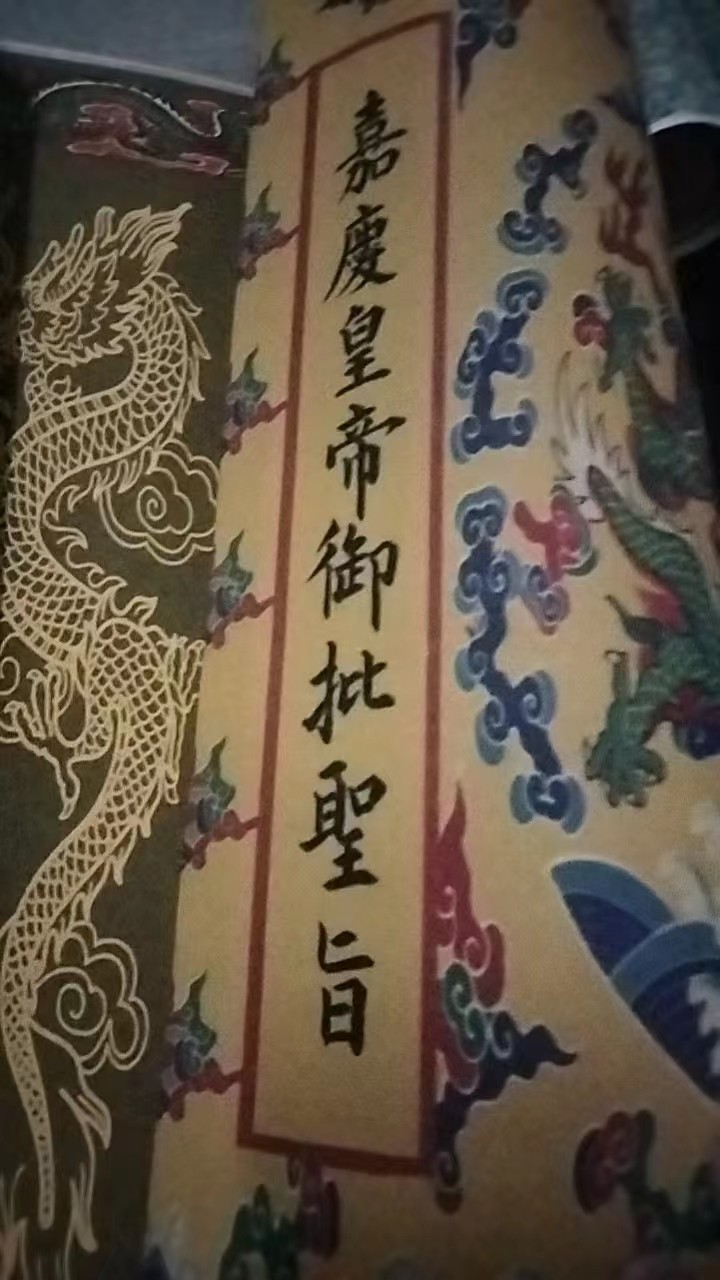 嘉慶皇帝御批聖旨